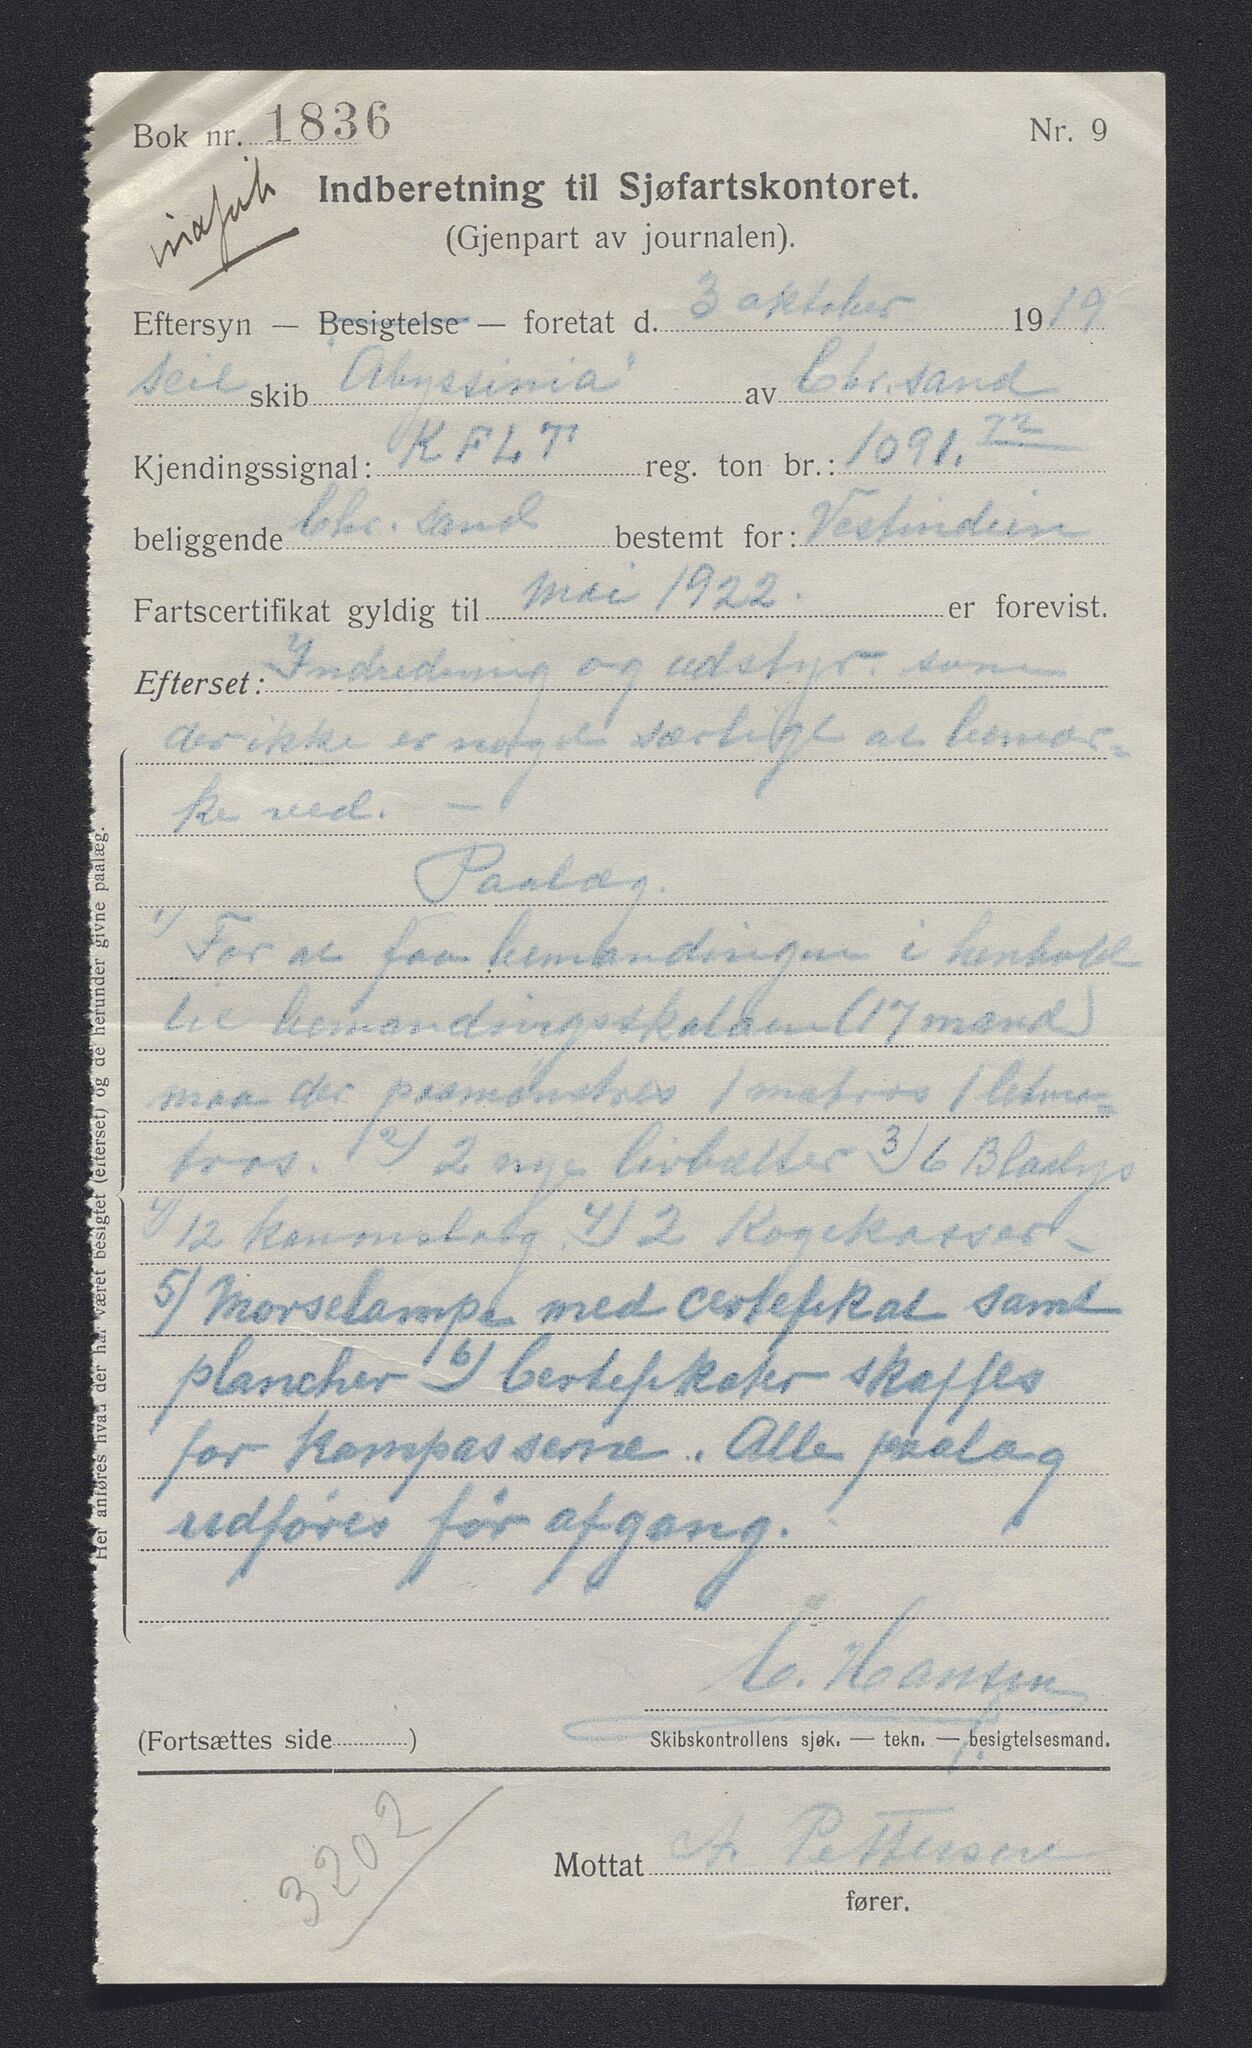 Bok nr. 1836
Nr. 9
Indberetning til Sjøfartskontoret.
(Gjenpart av journalen).
Eftersyn — Besigtelse — foretat d. 3 oktober 1919
Seil skib "Abyssinia" av Chr.sand
Kjendingssignal: K F L T reg. ton br.: 1091.72
beliggende Chr. sand bestemt for: Vestindien
Fartscertifikat gyldig til mai 1922. er forevist.
Efterset: Indredning og udstyr som
der ikke er nogle særligt at bemær-
ke ved. —
Paalæg.
1) For at faa bemandingen i henhold
til bemandingsskalaen (17 mand)
maa der paamønstres 1 matros 1 letma-
tros. 2) 2 nye livbælter 3) 6 Blaalys
4) 12 4) 2 Kogekasser -
5) Morselampe med certefikat samt
plancher 6) Certefikater skaffes
for kompasserne. Alle paalæg
udføres før afgang.
C. Hansen
(Fortsættes side )
Skibskontrollens sjøk. — tekn. — besigtelsesmand.
3202
Mottat A. Pettersen
fører.
Her anføres hvad der har været besigtet (efterset) og de herunder givne paalæg.